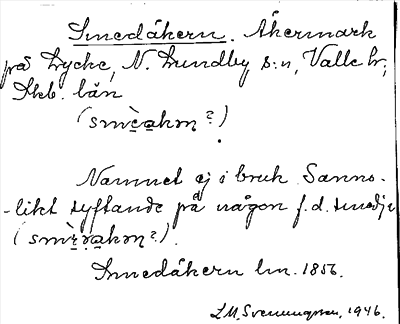 Smedåkern. Åkermark
på Lycke, N. Lundby s:n, Valle hd,
Skb. län
(smèakən?)
Namnet ej i bruk Sanno-
-likt syftande på någon f.d. smedja
(smèakən?).
Smedåkern lm. 1856.
L.M. Svenungsson, 1946.